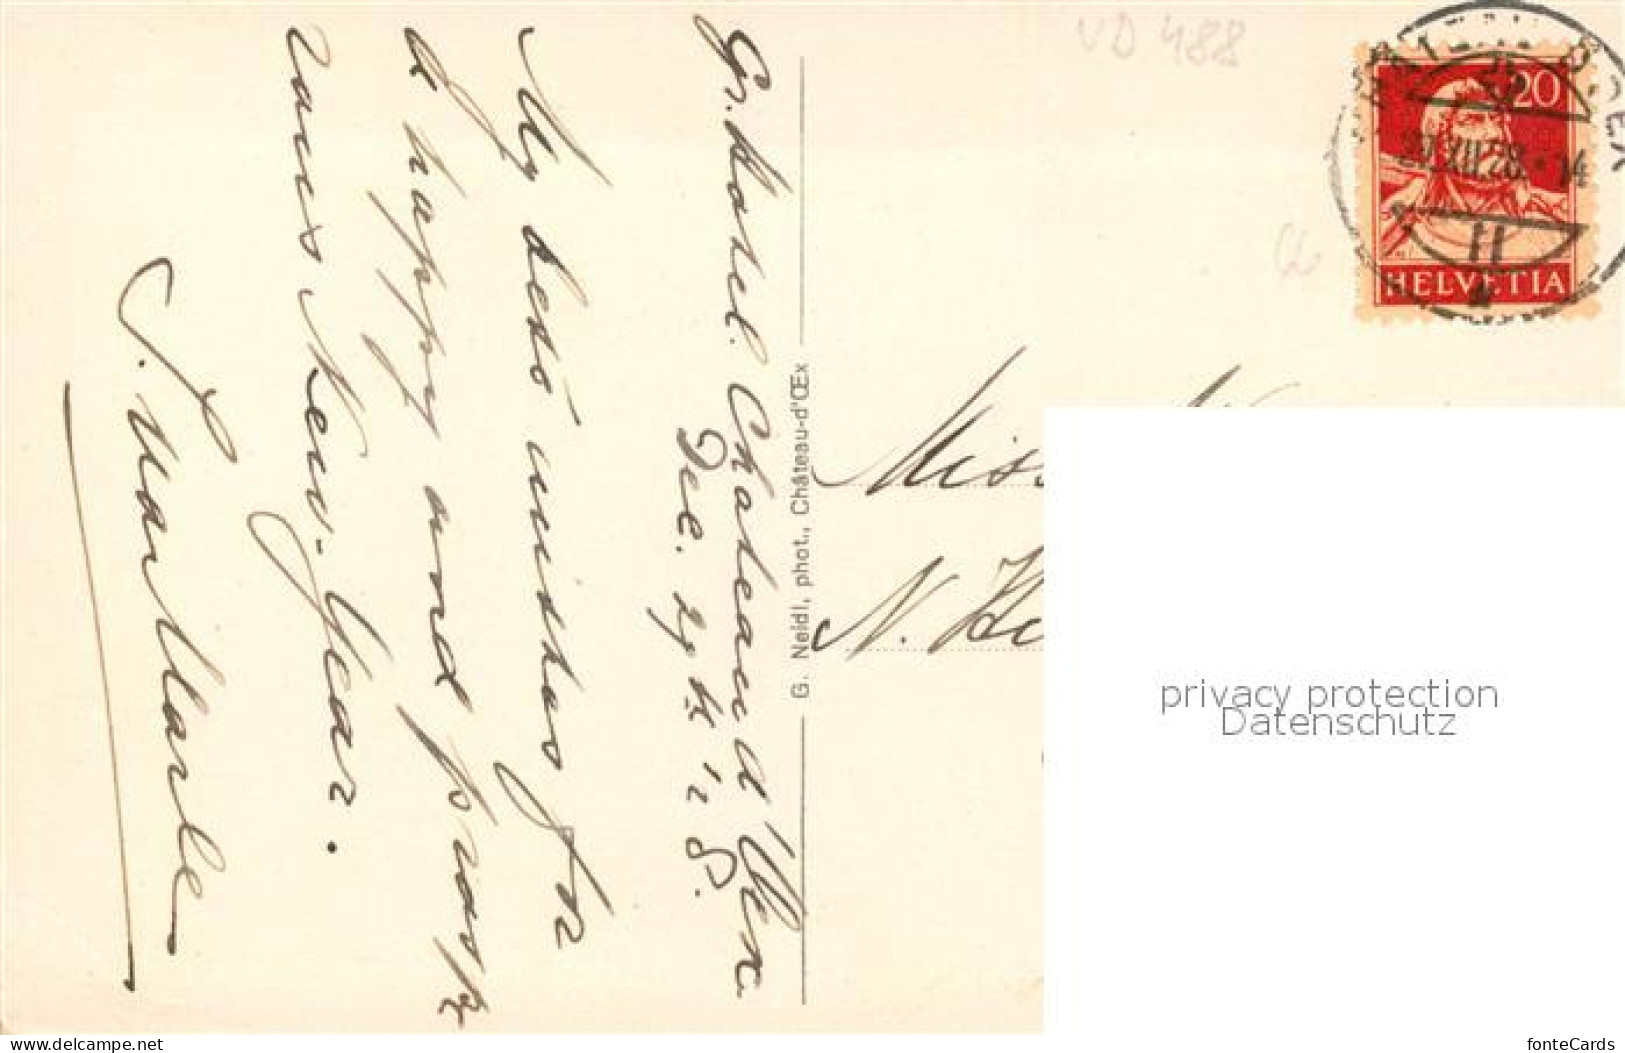 Gr. Hotel. Chateau d'Oex
Dec. 29th '28.
My best wishes for
a happy and prosp
rous New-Year.
J. van Marle
G. Neidl, phot., Château-d'Œx
VD 488
20
HELVETIA
XII.28. 14
Miss
N.
privacy protection
Datenschutz
www.delcampe.net
fonteCards